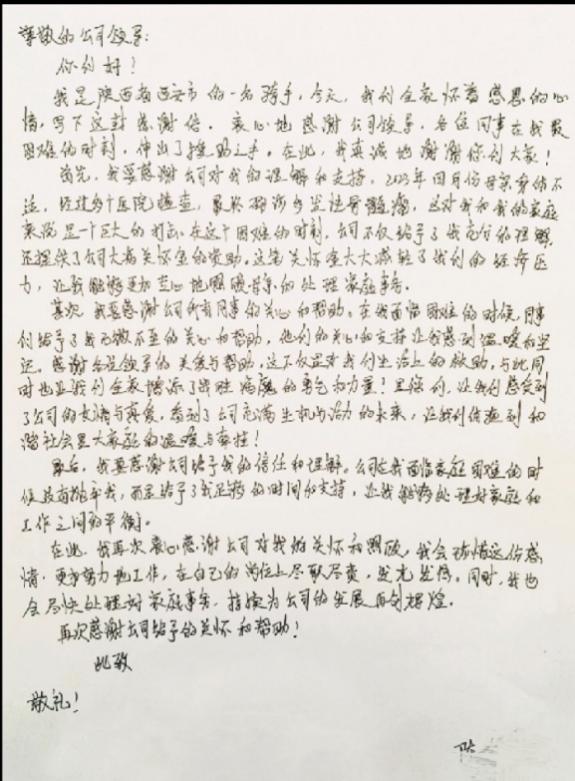 尊敬的公司领导:
你们好!
我是陕西省西安市的一名骑手,今天,我们全家怀着感恩的心
情,写下这封感谢信。衷心地感谢公司领导,各位同事在我最
困难的时刻,伸出了援助之手。在此,我真诚地谢谢你们大家!
首先,我要感谢公司对我的理解和支持,2023年四月份母亲身体不
适,经过多个医院检查,最终确诊多发性骨髓瘤,这对我和我的家庭
来说是一个巨大的打击。在这个困难的时刻,公司不仅给予了我充分的理解,
还提供了公司大病关怀金的资助。这笔关怀金大大减轻了我们的经济压
力,让我能够更加安心地照顾母亲的处理家庭事务。
其次,我要感谢公司所有同事的关心和帮助。在我面临困难的时候,同事
们给予了我无微不至的关心和帮助,他们的关心和支持让我感到温暖和坚
定。感谢各位领导的关爱与帮助,这不仅是对我们生活上的救助,与此同
时也让我们全家增添了战胜病魔的勇气和力量!是你们,让我们感受到
了公司的友情与真爱,看到了公司充满生机与活力的未来,让我们体迎到和
谐社会是大家庭的温暖与幸福!
最后,我要感谢公司给予我的信任和理解。公司在我面临家庭困难的时
候没有抛弃我,而是给予了我足够的时间和支持,让我能够处理好家庭和
工作之间的平衡。
在此,我再次衷心感谢公司对我的关怀和照顾,我会珍惜这份感
情,更加努力地工作,在自己的岗位上尽职尽责,发光发热。同时,我也
会尽快处理好家庭事务,持续为公司的发展再创辉煌。
再次感谢公司给予的关怀和帮助!
此致
敬礼!